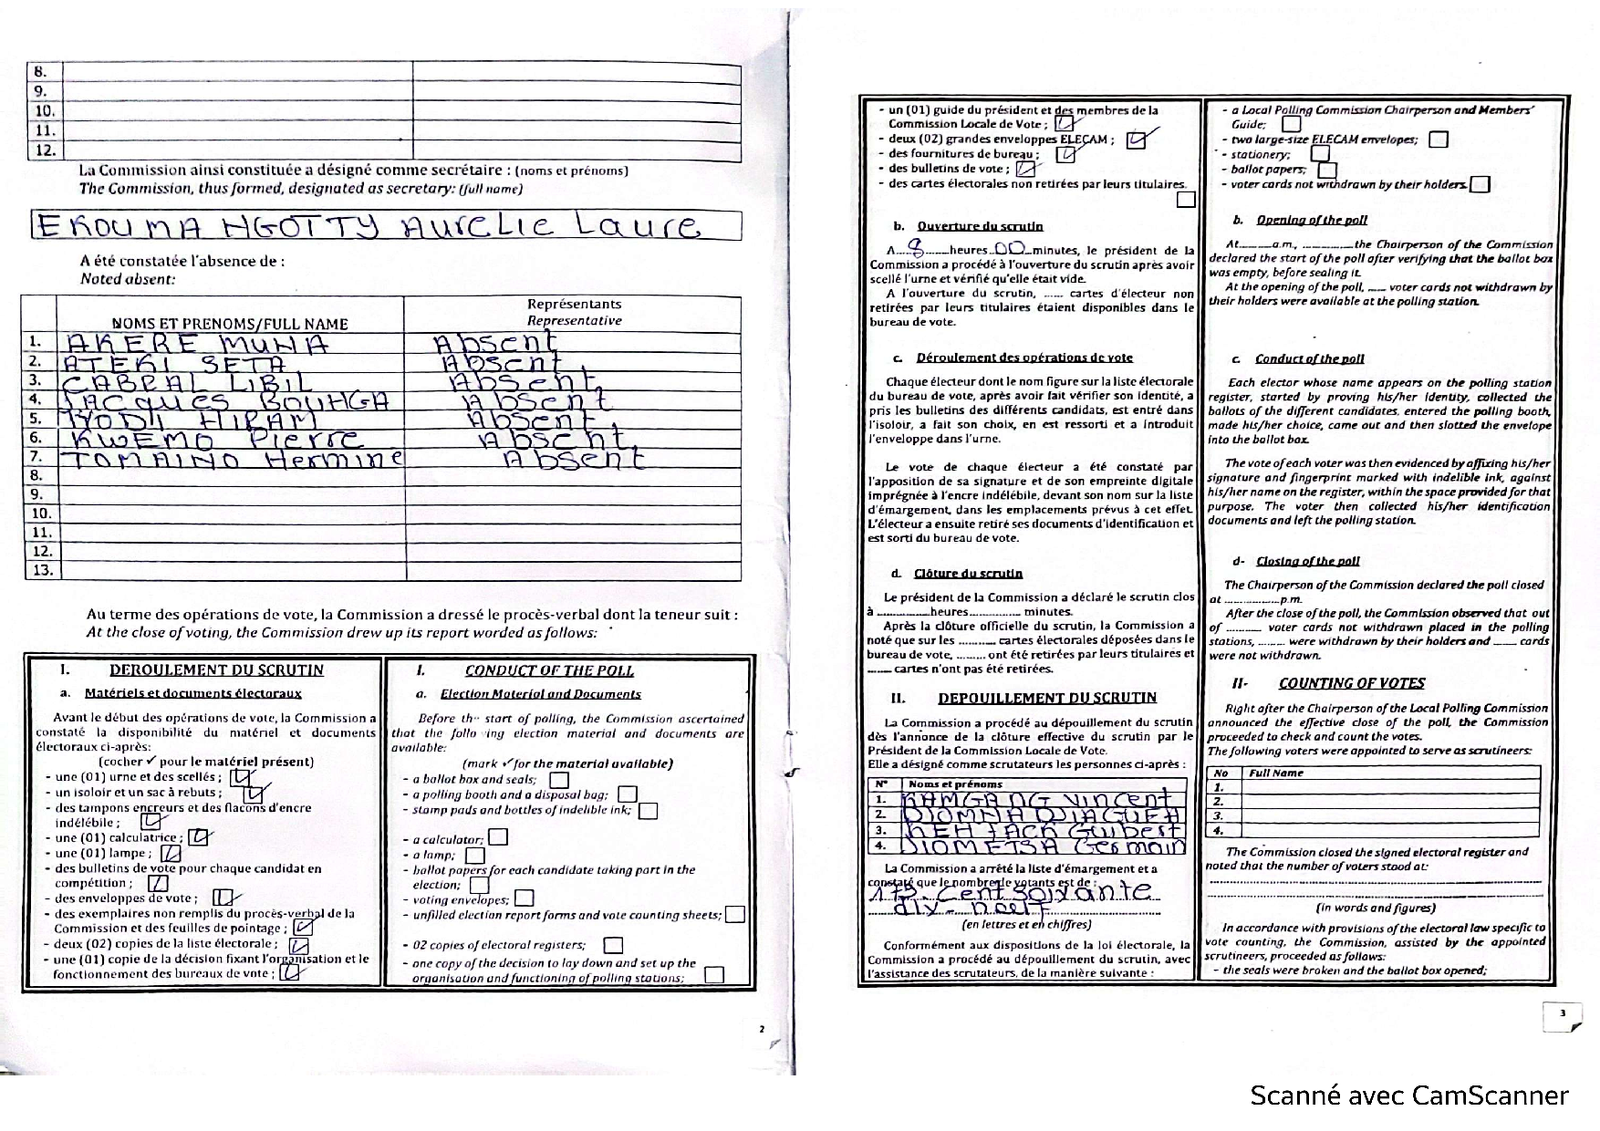 8.
9.
10.
11.
12.
La Commission ainsi constituée a désigné comme secrétaire : (noms et prénoms)
The Commission, thus formed, designated as secretary: (full name)
EKOUMA NGOTTY Aurelie Laure
A été constatée l'absence de :
Noted absent:
NOMS ET PRENOMS/FULL NAME
Représentants
Representative
1. AKERE MUNA Absent
2. ATEKI SETA Absent
3. CABRAL LIBIL Absent
4. Jacques BOUNGA Absent
5. IYODI HIRAM Absent
6. KWEMO Pierre Absent
7. TOMAINO Hermine Absent
8.
9.
10.
11.
12.
13.
Au terme des opérations de vote, la Commission a dressé le procès-verbal dont la teneur suit :
At the close of voting, the Commission drew up its report worded as follows:
I. DEROULEMENT DU SCRUTIN
a. Matériels et documents électoraux
Avant le début des opérations de vote, la Commission a
constaté la disponibilité du matériel et documents
électoraux ci-après:
(cocher ✓ pour le matériel présent)
- une (01) urne et des scellés ;
- un isoloir et un sac à rebuts ;
- des tampons encreurs et des flacons d'encre
indélébile ;
- une (01) calculatrice ;
- une (01) lampe ;
- des bulletins de vote pour chaque candidat en
compétition ;
- des enveloppes de vote ;
- des exemplaires non remplis du procès-verbal de la
Commission et des feuilles de pointage ;
- deux (02) copies de la liste électorale ;
- une (01) copie de la décision fixant l'organisation et le
fonctionnement des bureaux de vote ;
I. CONDUCT OF THE POLL
a. Election Material and Documents
Before the start of polling, the Commission ascertained
that the following election material and documents are
available:
(mark ✓ for the material available)
- a ballot box and seals;
- a polling booth and a disposal bag;
- stamp pads and bottles of indelible ink;
- a calculator;
- a lamp;
- ballot papers for each candidate taking part in the
election;
- voting envelopes;
- unfilled election report forms and vote counting sheets;
- 02 copies of electoral registers;
- one copy of the decision to lay down and set up the
organisation and functioning of polling stations;
2
- un (01) guide du président et des membres de la
Commission Locale de Vote ;
- deux (02) grandes enveloppes ELECAM ;
- des fournitures de bureau ;
- des bulletins de vote ;
- des cartes électorales non retirées par leurs titulaires.
b. Ouverture du scrutin
A 8 heures 00 minutes, le président de la
Commission a procédé à l'ouverture du scrutin après avoir
scellé l'urne et vérifié qu'elle était vide.
A l'ouverture du scrutin, ...... cartes d'électeur non
retirées par leurs titulaires étaient disponibles dans le
bureau de vote.
c. Déroulement des opérations de vote
Chaque électeur dont le nom figure sur la liste électorale
du bureau de vote, après avoir fait vérifier son identité, a
pris les bulletins des différents candidats, est entré dans
l'isoloir, a fait son choix, en est ressorti et a introduit
l'enveloppe dans l'urne.
Le vote de chaque électeur a été constaté par
l'apposition de sa signature et de son empreinte digitale
imprégnée à l'encre indélébile, devant son nom sur la liste
d'émargement, dans les emplacements prévus à cet effet.
L'électeur a ensuite retiré ses documents d'identification et
est sorti du bureau de vote.
d. Clôture du scrutin
Le président de la Commission a déclaré le scrutin clos
à ............ heures ............ minutes.
Après la clôture officielle du scrutin, la Commission a
noté que sur les .......... cartes électorales déposées dans le
bureau de vote, ........ ont été retirées par leurs titulaires et
...... cartes n'ont pas été retirées.
II. DEPOUILLEMENT DU SCRUTIN
La Commission a procédé au dépouillement du scrutin
dès l'annonce de la clôture effective du scrutin par le
Président de la Commission Locale de Vote.
Elle a désigné comme scrutateurs les personnes ci-après :
N° Noms et prénoms
1. KAMGANG Vincent
2. DJOMNA DJAGUEA
3. KEH JACK Guibest
4. DJOMETSA Germain
La Commission a arrêté la liste d'émargement et a
constaté que le nombre de votants est de :
179 Cent soixante
dix-neuf
(en lettres et en chiffres)
Conformément aux dispositions de la loi électorale, la
Commission a procédé au dépouillement du scrutin, avec
l'assistance des scrutateurs, de la manière suivante :
- a Local Polling Commission Chairperson and Members'
Guide;
- two large-size ELECAM envelopes;
- stationery;
- ballot papers;
- voter cards not withdrawn by their holders.
b. Opening of the poll
At..........a.m., ............the Chairperson of the Commission
declared the start of the poll after verifying that the ballot box
was empty, before sealing it.
At the opening of the poll, ..... voter cards not withdrawn by
their holders were available at the polling station.
c. Conduct of the poll
Each elector whose name appears on the polling station
register, started by proving his/her identity, collected the
ballots of the different candidates, entered the polling booth,
made his/her choice, came out and then slotted the envelope
into the ballot box.
The vote of each voter was then evidenced by affixing his/her
signature and fingerprint marked with indelible ink, against
his/her name on the register, within the space provided for that
purpose. The voter then collected his/her identification
documents and left the polling station.
d- Closing of the poll
The Chairperson of the Commission declared the poll closed
at ................p.m.
After the close of the poll, the Commission observed that out
of .......... voter cards not withdrawn placed in the polling
stations, ........ were withdrawn by their holders and ...... cards
were not withdrawn.
II- COUNTING OF VOTES
Right after the Chairperson of the Local Polling Commission
announced the effective close of the poll, the Commission
proceeded to check and count the votes.
The following voters were appointed to serve as scrutineers:
No Full Name
1.
2.
3.
4.
The Commission closed the signed electoral register and
noted that the number of voters stood at:
(in words and figures)
In accordance with provisions of the electoral law specific to
vote counting, the Commission, assisted by the appointed
scrutineers, proceeded as follows:
- the seals were broken and the ballot box opened;
3
Scanné avec CamScanner